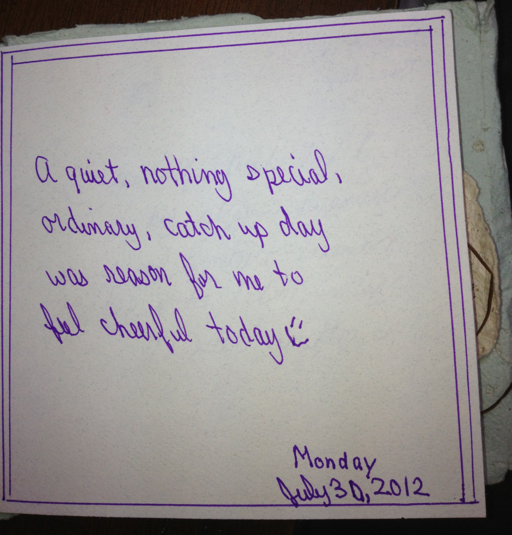 A quiet, nothing special,
ordinary, catch up day
was reason for me to
feel cheerful today
Monday
July 30, 2012